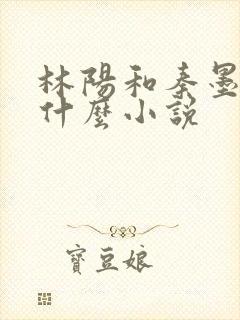 林陽和秦墨
什麼小說
寶豆娘